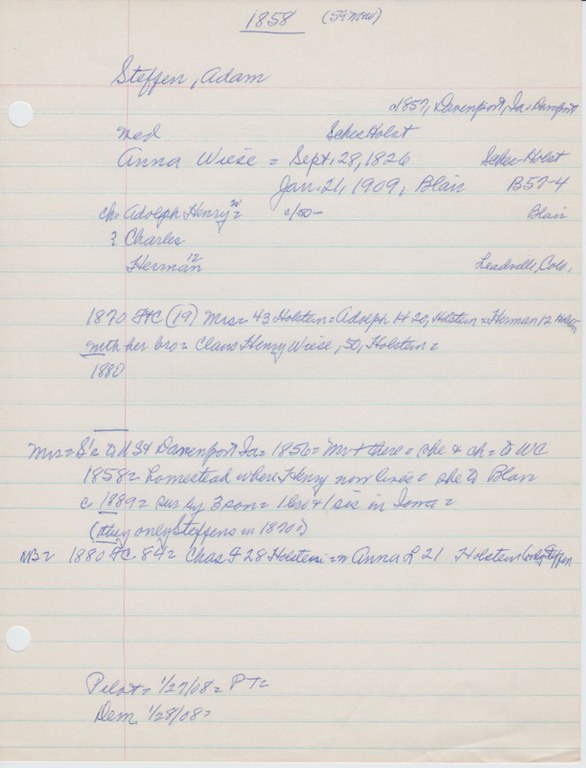 1858
Steffen, Adam
d1857, Davenport, Ia. Davenport
med Schles Holst
Anna Wiese = Sept. 28, 1826 Holst
Jan. 21, 1909, Blair B57-4
ch. Adolph Henry 20 = c/50- Blair
? Charles
Herman 12 Leadville, Colo.
1870 FtC (19) Mrs = 43 Holstein = Adolph H 20, Holstein = Herman 12
with her bro = Claus Henry Wiese, 50, Holstein =
1880
Mrs = to US & Davenport Ia = 1856 = Mr + there = she & ch = to WC
1858 = homestead where Henry now lives = she to Blair
c 1889 = sur by 3 sons = 1 bro & 1 sis in Iowa =
(they only Steffens in 1870 =)
NB = 1880 FC 84 = Chas F 28 Holstein = Anna L 21 Holstein (only Steffen
Pilot = 1/27/08 = PT =
Dem. 1/28/08 =